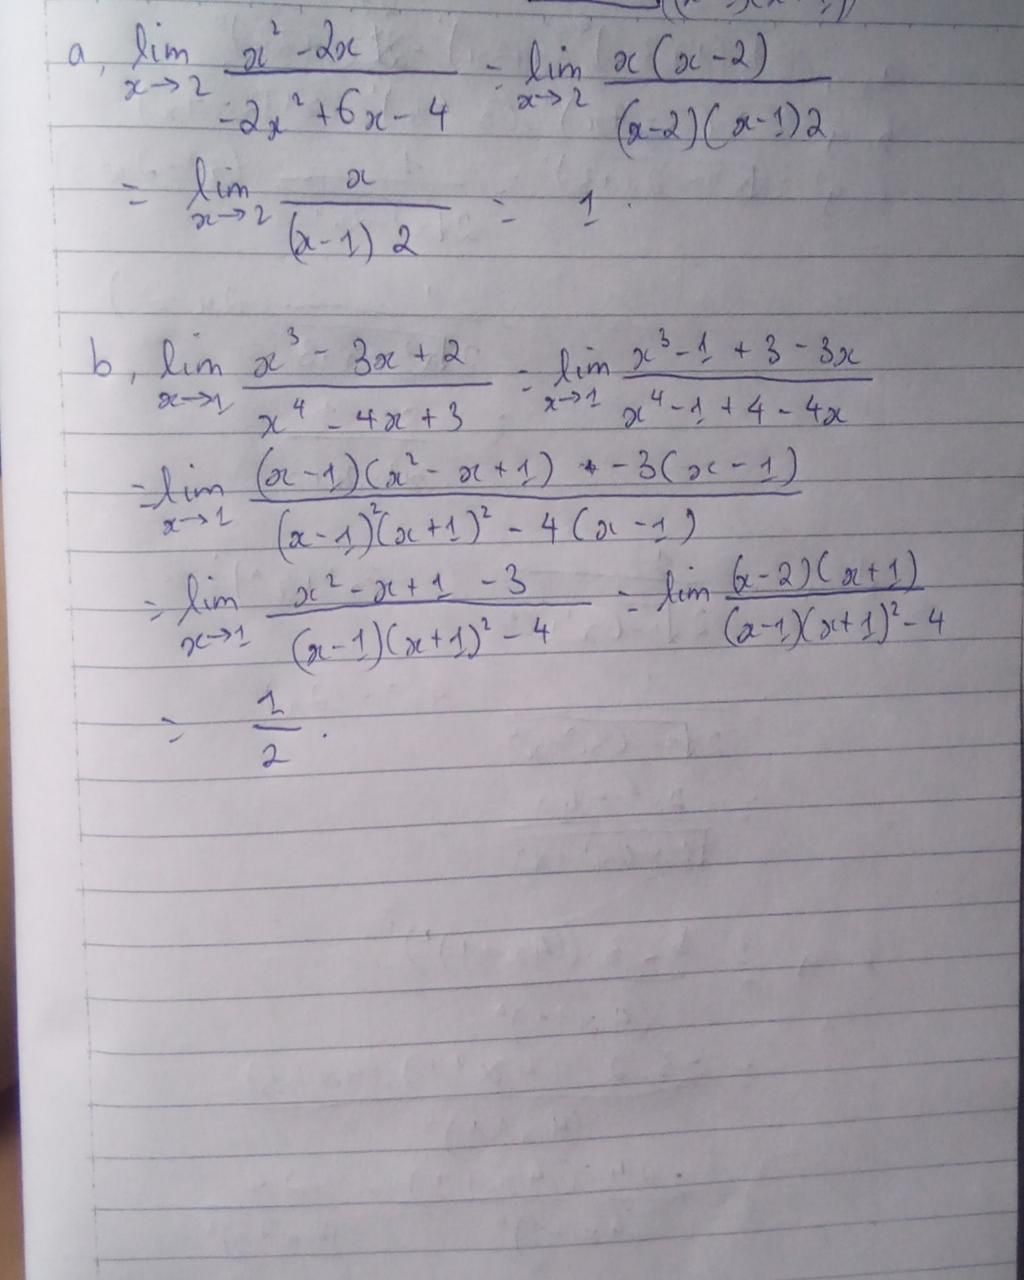 a, lim x→2 (x² - 2x)/(-2x² + 6x - 4) = lim x→2 x(x-2)/((x-2)(x-1)2)
= lim x→2 x/((x-1)2) = 1.
b, lim x→1 (x³ - 3x + 2)/(x⁴ - 4x + 3) = lim x→1 (x³ - 1 + 3 - 3x)/(x⁴ - 1 + 4 - 4x)
= lim x→1 ((x-1)(x² - x + 1) - 3(x-1))/((x-1)²(x+1)² - 4(x-1))
= lim x→1 (x² - x + 1 - 3)/((x-1)(x+1)² - 4) = lim ((x-2)(x+1))/((x-1)(x+1)² - 4)
= 1/2.